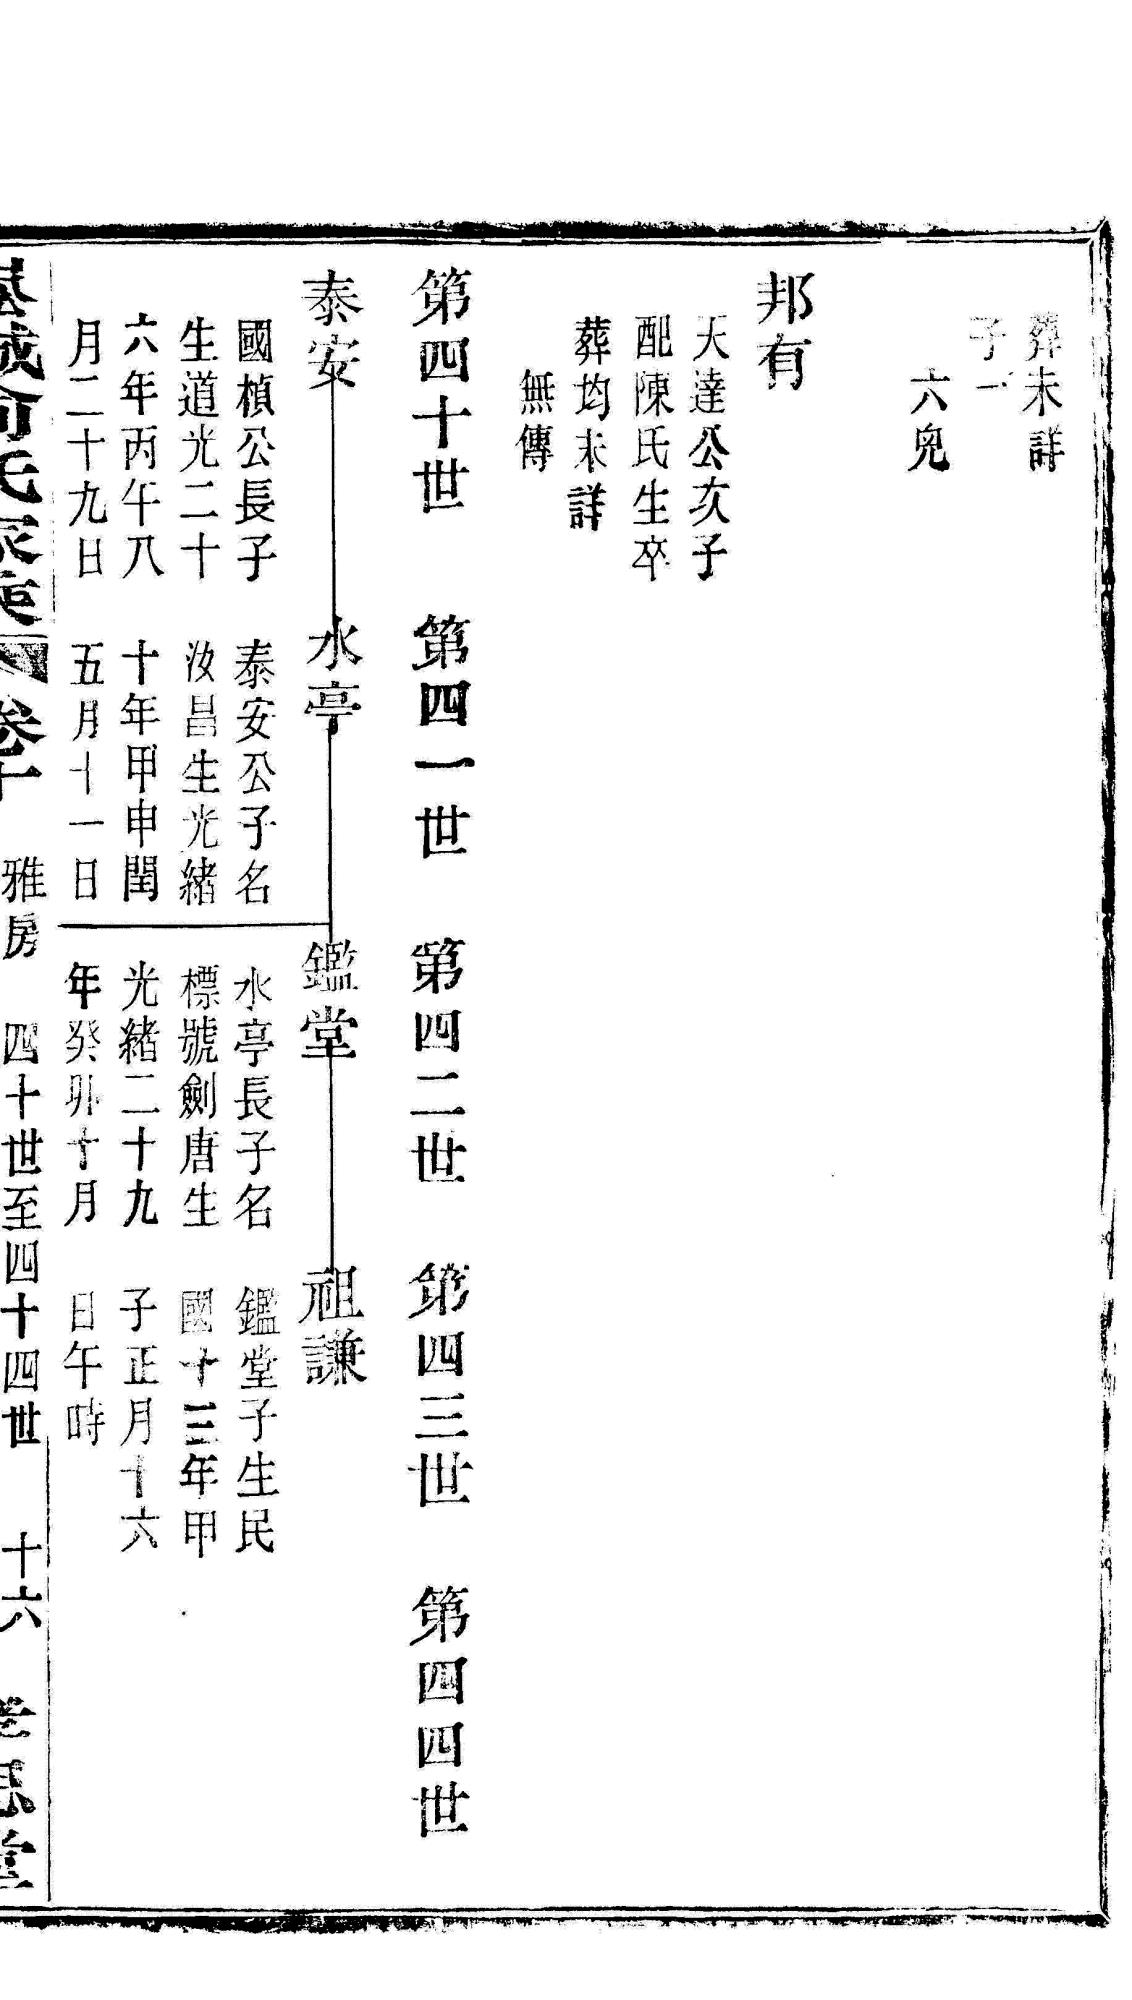 葬未詳
子一
六兒
邦有
天達公次子
配陳氏生卒
葬均未詳
無傳
第四十世 第四一世 第四二世 第四三世 第四四世
泰安 水亭 鑑堂 祖謙
國楨公長子 泰安公子名 水亭長子名 鑑堂子生民
生道光二十 汝昌生光緒 標號劍唐生 國十三年甲
六年丙午八 十年甲申閏 光緒二十九 子正月十六
月二十九日 五月十一日 年癸卯十月 日午時
氏家乘 卷十 雅房 四十世至四十四世 十六 孝思堂